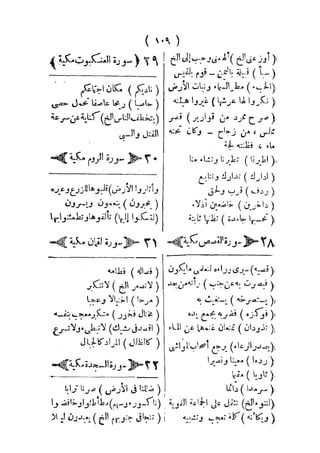 ( ١٠٩ )
( أوزعني الخ ) ألهمني وحبب إلي الخ
( سبأ ) قبيلة باليمن - قوم بلقيس
( الخبء ) مطر السماء ونبات الأرض
( نكروا لها عرشها ) غيروا هيئته
( صرح ممرد من قوارير ) قصر
مملس ، من زجاج - وكان تحته
ماء ، فظنته لجة
( اطيرنا ) تطيرنا وتشاءمنا
( ادارك ) تدارك وتتابع
( ردف ) قرب ولحق
( داخرين ) خاضعين أذلاء
( تحسبها جامدة ) تظنها ثابتة
٢٨ - سورة القصص مكية
( قصيه )
( فبصرت به عن جنب ) رأته من بعد
( يستصرخه ) يستغيث به
( فوكزه ) فضربه بجمع يده
( تذودان ) تمنعان غنمهما عن الماء
( يصدر الرعاء ) يرجع أصحاب
( ردءا ) معينا ونصيرا
( ثاويا ) مقيما
( سرمدا ) دائما
( لتنوء الخ ) تثقل على الجماعة القوية
( ويكأنه ) كلمة تعجب وتنبيه
٢٩ - سورة العنكبوت مكية
( ناديكم ) مكان اجتماعكم
( حاصبا ) ريحا عاصفا تحمل حصى
( يتخطف الناس الخ ) كناية عن سرعة
القتل والسبي
٣٠ - سورة الروم مكية
( وأثاروا الأرض ) قلبوها للزرع وغيره
( يحبرون ) ينعمون ويسرون
( لتسكنوا إليها ) تألفوها وتطمئنوا بها
٣١ - سورة لقمان مكية
( فصاله ) فطامه
( لا تصعر الخ ) لا تتكبر
( مرحا ) اختيالا وعجبا
( مختال فخور ) متكبر معجب بنفسه
( اقصد في مشيك ) لا تبطئ ولا تسرع
( كالظلل ) المراد كالجبال
٣٢ - سورة السجدة مكية
( ضللنا في الأرض ) صرنا ترابا
( ناكسو رءوسهم ) مطأطئوا وخافضوا
( تتجافى جنوبهم الخ ) يعبدون ليلا